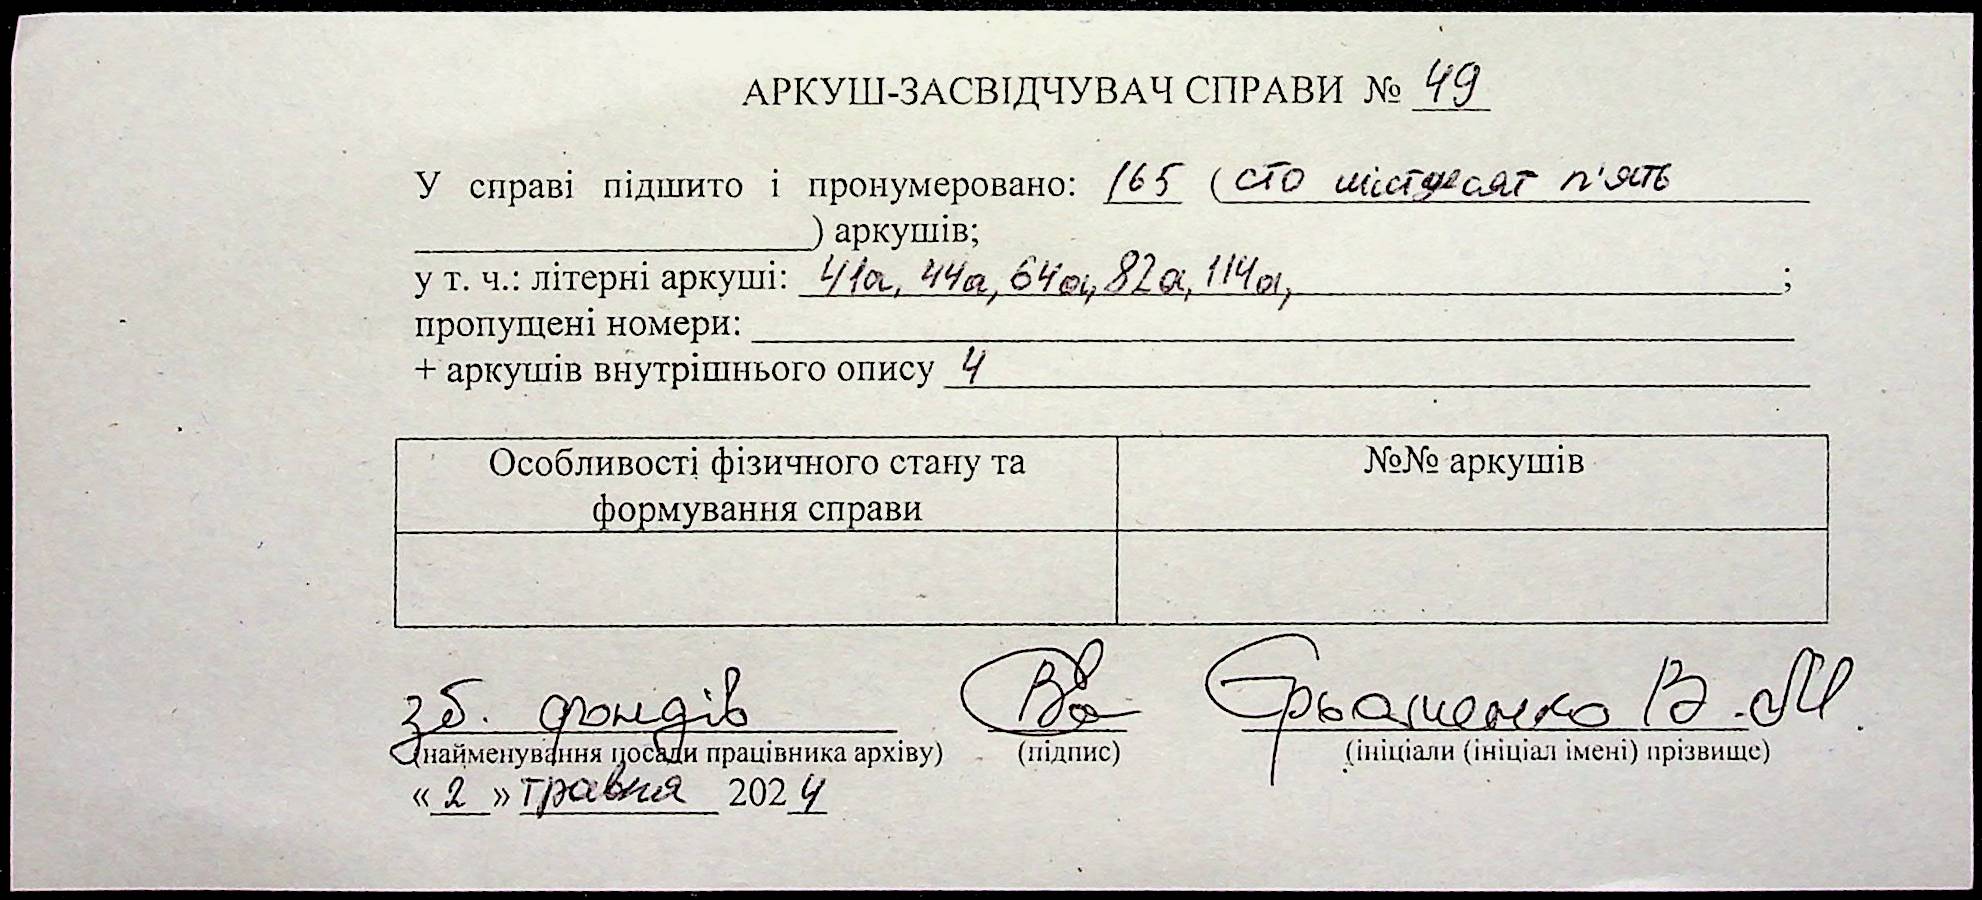 АРКУШ-ЗАСВІДЧУВАЧ СПРАВИ № 49
У справі підшито і пронумеровано: 165 (сто шістдесят п'ять
) аркушів;
у т. ч.: літерні аркуші: 41а, 44а, 64а, 82а, 114а, ;
пропущені номери:
+ аркушів внутрішнього опису 4
Особливості фізичного стану та
формування справи
№№ аркушів
зб. фондів В. М.
(найменування посади працівника архіву) (підпис) (ініціали (ініціал імені) прізвище)
« 2 » травня 2024